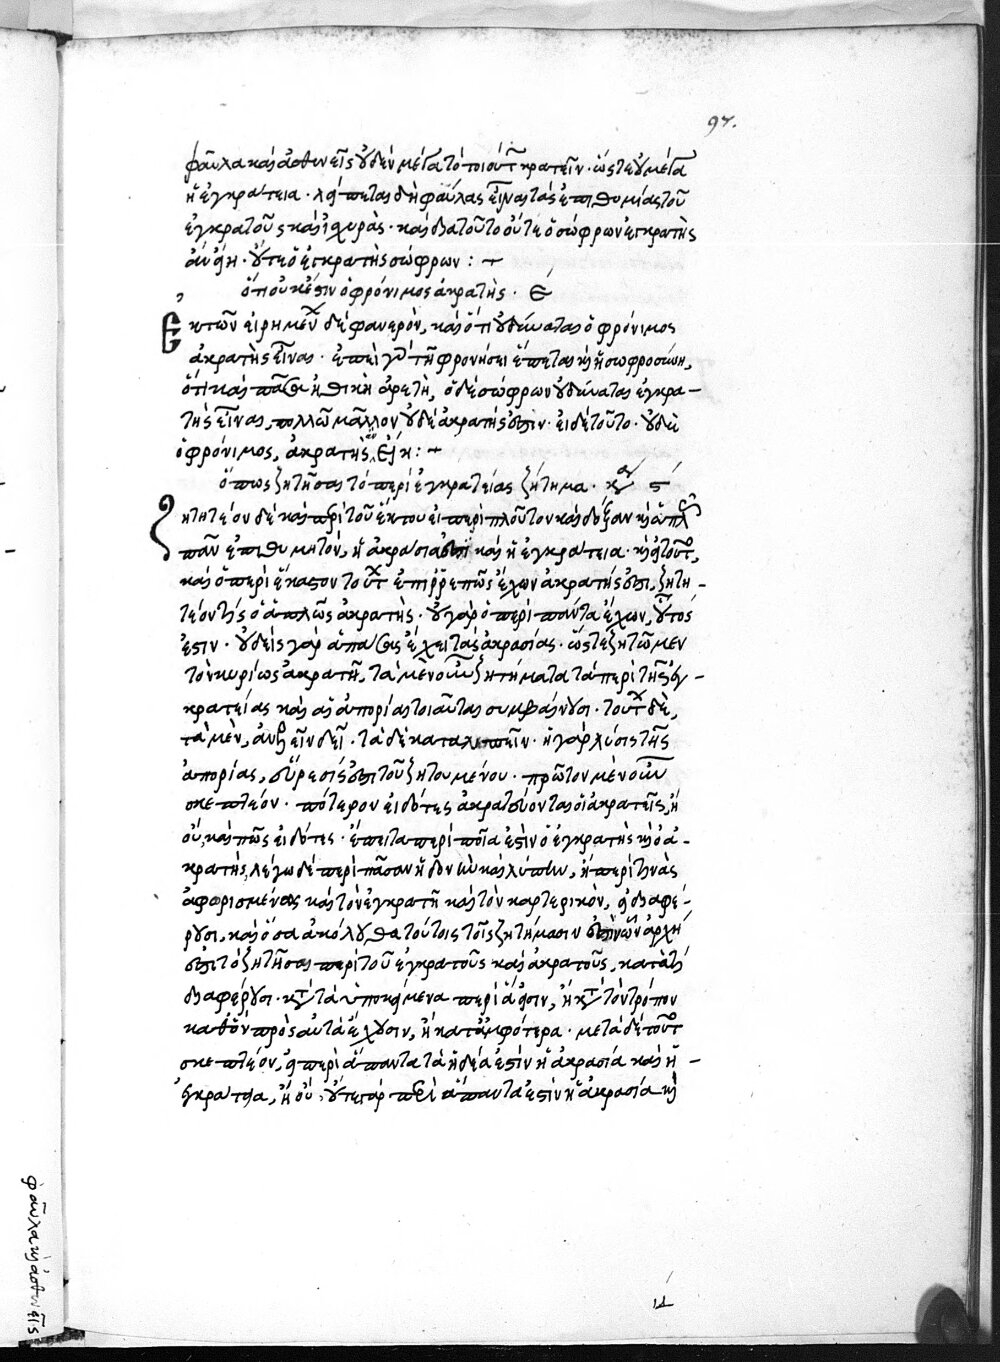 97.
φαῦλα καὶ ἀσθενεῖς οὐδὲν μέγα τὸ τοιούτ κρατεῖν· ὥστε οὐ μέγα
ἡ ἐγκράτεια· λείπεται δὴ φαύλας εἶναι τὰς ἐπιθυμίας τοῦ
ἐγκρατοῦς καὶ ἰσχυράς· καὶ διὰ τοῦτο οὔτε ὁ σώφρων ἐγκρατὴς
ἂν εἴη· οὔτε ὁ ἐγκρατὴς σώφρων :
ὅτι οὐκ ἔστιν ὁ φρόνιμος ἀκρατής· ε
Ἐκ τῶν εἰρημέν δέ φανερὸν, καὶ ὅτι οὐ δύναται ὁ φρόνιμος
ἀκρατὴς εἶναι· ἐπεὶ γὰρ τῇ φρονήσει ἕπεται καὶ ἡ σωφροσύνη,
ὅτι καὶ πᾶσι ἠθικὴ ἀρετὴ, ὁ δὲ σώφρων οὐ δύναται ἐγκρα-
τὴς εἶναι, πολλῷ μᾶλλον οὐδὲ ἀκρατής ἐστιν· εἰ δὲ τοῦτο· οὐδὲ
ὁ φρόνιμος, ἀκρατὴς ἂν εἴη :
ὅπως ζητῆσαι τὸ περὶ ἐγκρατείας ζήτημα· κ ϛ
Ζητητέον δὲ καὶ περὶ τοῦ ἕκτου εἰ περὶ πλοῦτον καὶ δόξαν καὶ ἁπλ
πᾶν ἐπιθυμητὸν, ἡ ἀκρασία ἐστὶ καὶ ἡ ἐγκράτεια· καὶ εἰ τοῦτ,
καὶ ὁ περὶ ἕκαστον τούτ ἐπιρρεπῶς ἔχων ἀκρατής ἐστι, ζητη-
τέον τίς ὁ ἁπλῶς ἀκρατὴς· οὐ γὰρ ὁ περὶ πάντα ἔχων, οὗτος
ἐστιν· οὐδεὶς γὰρ ἁπάσαις ἔχει ταῖς ἀκρασίαις· ὥστε ζητῶμεν
τὸν κυρίως ἀκρατῆ, τὰ μὲν οὖν ζητήματα τὰ περὶ τῆς ἐγ-
κρατείας καὶ αἱ ἀπορίαι τοιαῦται συμβαίνουσι· τούτ δὲ,
τὰ μὲν, ἀνελεῖν δεῖ· τὰ δὲ καταλιπεῖν· ἡ γὰρ λύσις τῆς
ἀπορίας, εὕρεσίς ἐστι τοῦ ζητουμένου· πρῶτον μὲν οὖν
σκεπτέον· πότερον εἰδότες ἀκρατεύονται οἱ ἀκρατεῖς, ἢ
οὔ, καὶ πῶς εἰδότες· ἔπειτα περὶ ποῖα ἐστὶν ὁ ἐγκρατὴς καὶ ὁ ἀ-
κρατὴς, λέγω δὲ περὶ πᾶσαν ἡδονὴν καὶ λύπην, ἢ περὶ τινὰς
ἀφωρισμένας καὶ τὸν ἐγκρατῆ καὶ τὸν καρτερικὸν, εἰ διαφέ-
ρουσι, καὶ ὅσα ἀκόλουθα τούτοις τοῖς ζητήμασιν ἐστιν ὧν ἀρχή
ἐστι τὸ ζητῆσαι περὶ τοῦ ἐγκρατοῦς καὶ ἀκρατοῦς, κατὰ τί
διαφέρουσι· κτ τὰ ὑποκείμενα περὶ ἅ εἰσιν, ἢ κτ τὸν τρόπον
καθ' ὃν πρὸς αὐτὰ ἔχουσιν, ἢ κατ' ἀμφότερα· μετὰ δὲ τοῦτ
σκεπτέον, εἰ περὶ ἅπαντα τὰ ἡδέα ἐστὶν ἡ ἀκρασία καὶ ἡ
ἐγκράτεια, ἢ οὔ· οὔτε γὰρ περὶ ἅπαντα ἐστὶν ἡ ἀκρασία καὶ
φαῦλα καὶ ἀσθενεῖς